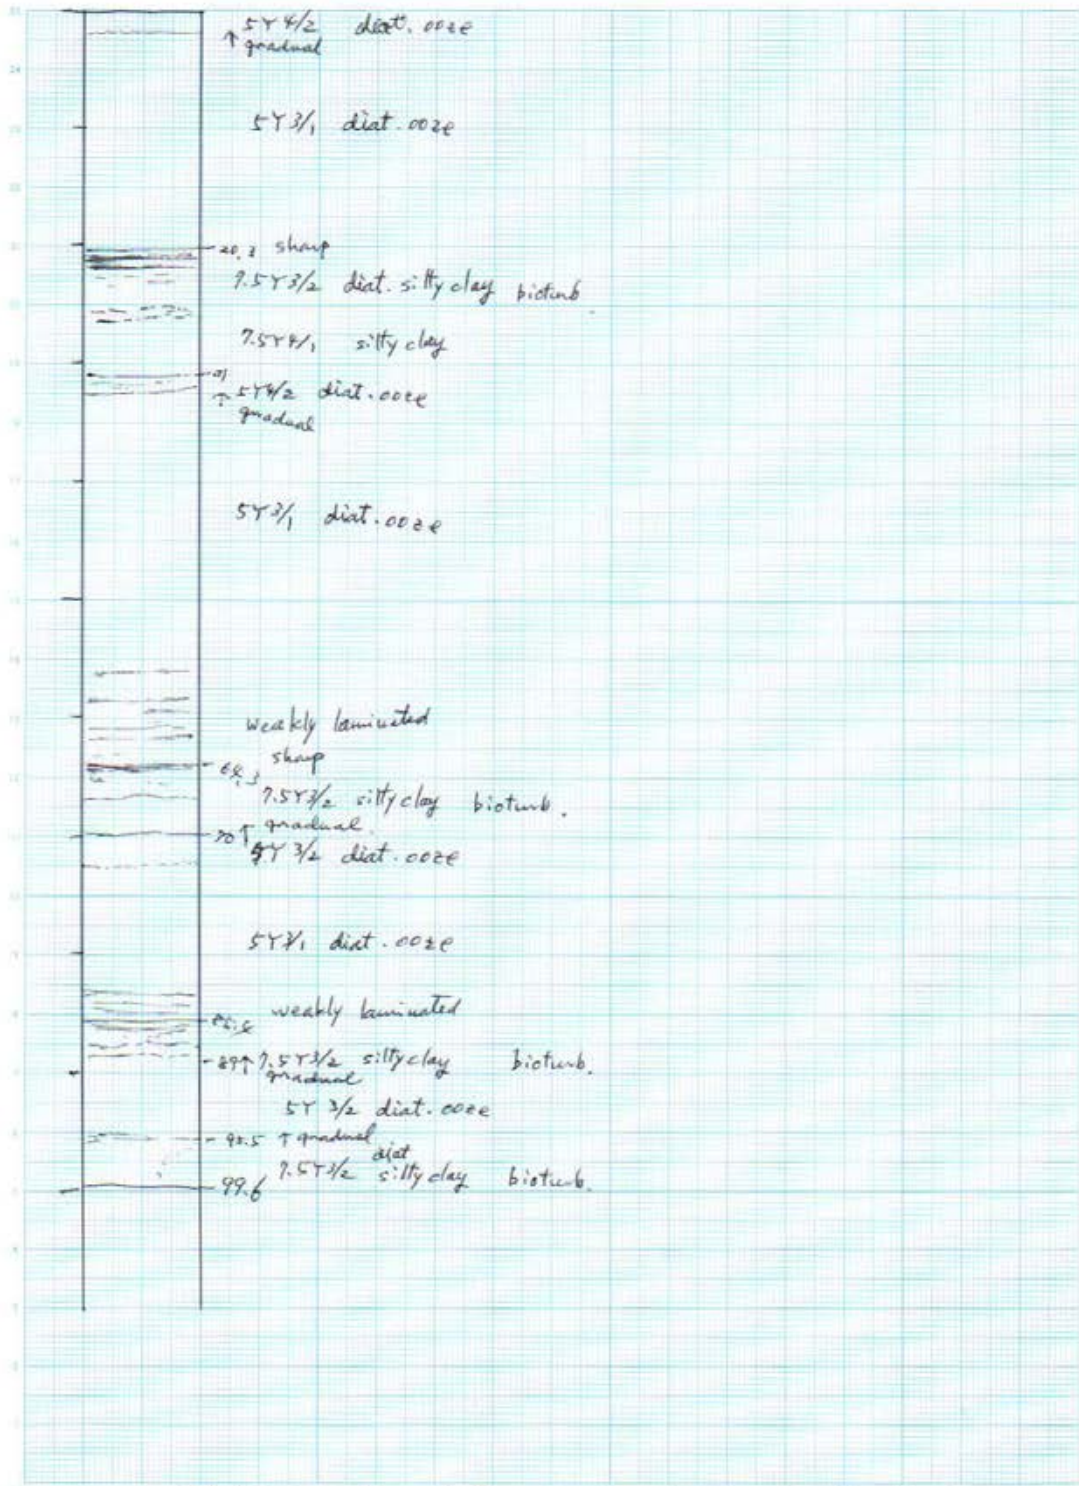 5Y 4/2 diat. ooze
↑ gradual
5Y 3/1 diat. ooze
20.3 sharp
7.5Y 3/2 diat. silty clay bioturb.
7.5Y 4/1 silty clay
31
↑ 5Y 4/2 diat. ooze
gradual
5Y 3/1 diat. ooze
weakly laminated
64.3 sharp
7.5Y 3/2 silty clay bioturb.
70 ↑ gradual
5Y 3/2 diat. ooze
5Y 3/1 diat. ooze
weakly laminated
89 ↑ 7.5Y 3/2 silty clay bioturb.
gradual
5Y 3/2 diat. ooze
↑ gradual
diat
99.6 7.5Y 3/2 silty clay bioturb.